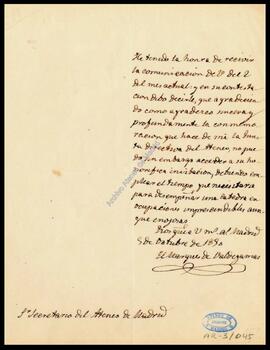 He tenido la honra de recivir
la comunicacion de V. del 2
del mes actual: y en su contesta
cion debo decirle, que agradecien
do como agradezco sincera y
profundamente la conmemo
racion que hace de mi la Junta
directiva del Ateneo, no pue
do sin embargo acceder a su ho
norifica invitacion, debiendo em
plear el tiempo que necesitaria
para desempeñar una catedra en
ocupaciones imprescindibles aun
que enojosas.
Dios gue a V. ms. as. Madrid
5 de Octubre de 1850
El Marques de Valdegamas
Sr. Secretario del Ateneo de Madrid
Archivo Ateneo de Madrid
AR-3/045